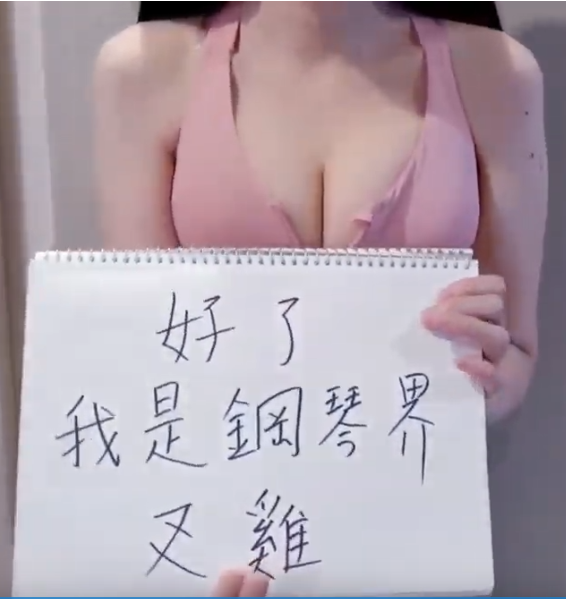 好了
我是鋼琴界
又雞